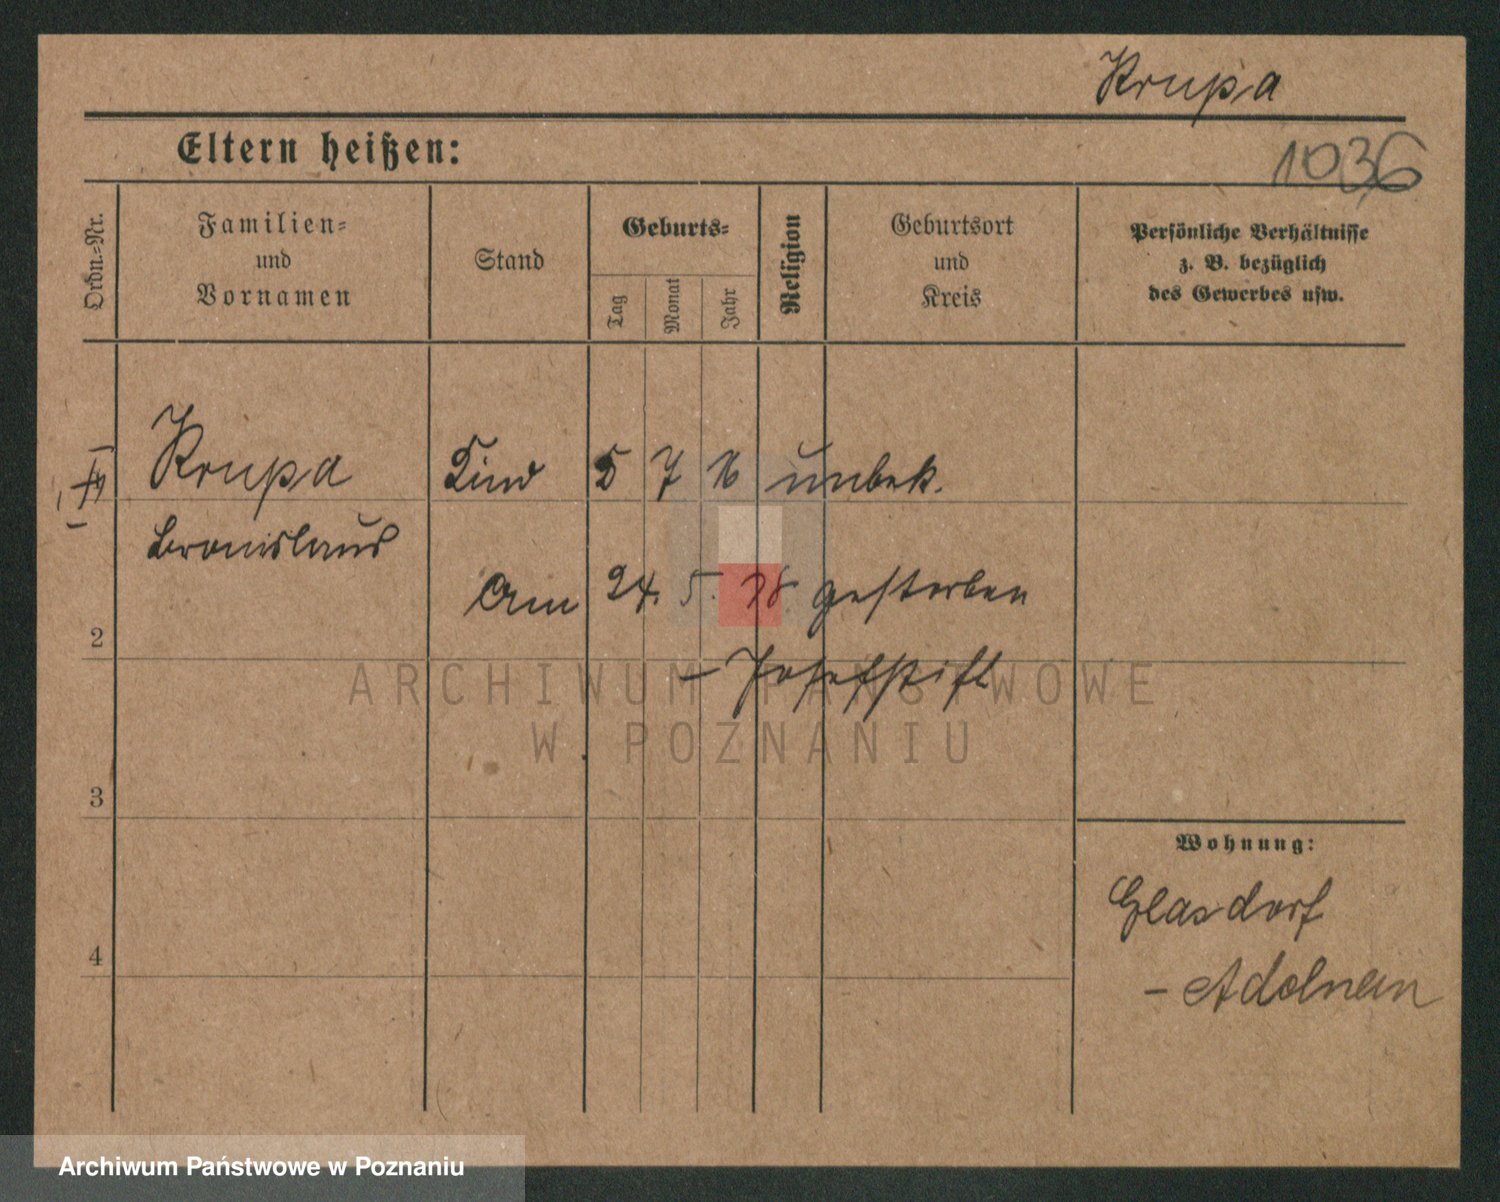 Krupa
Eltern heißen:
1036
Ordn.-Nr.
Familien=
und
Vornamen
Stand
Geburts=
Tag
Monat
Jahr
Religion
Geburtsort
und
Kreis
Persönliche Verhältnisse
z. B. bezüglich
des Gewerbes usw.
Krupa Kind 5 7 16 unbek.
Bronislaus
Am 24. 5. 18 gestorben
2
– Josefstift
3
4
Wohnung:
Glasdorf
–
ARCHIWUM PAŃSTWOWE
W POZNANIU
Archiwum Państwowe w Poznaniu